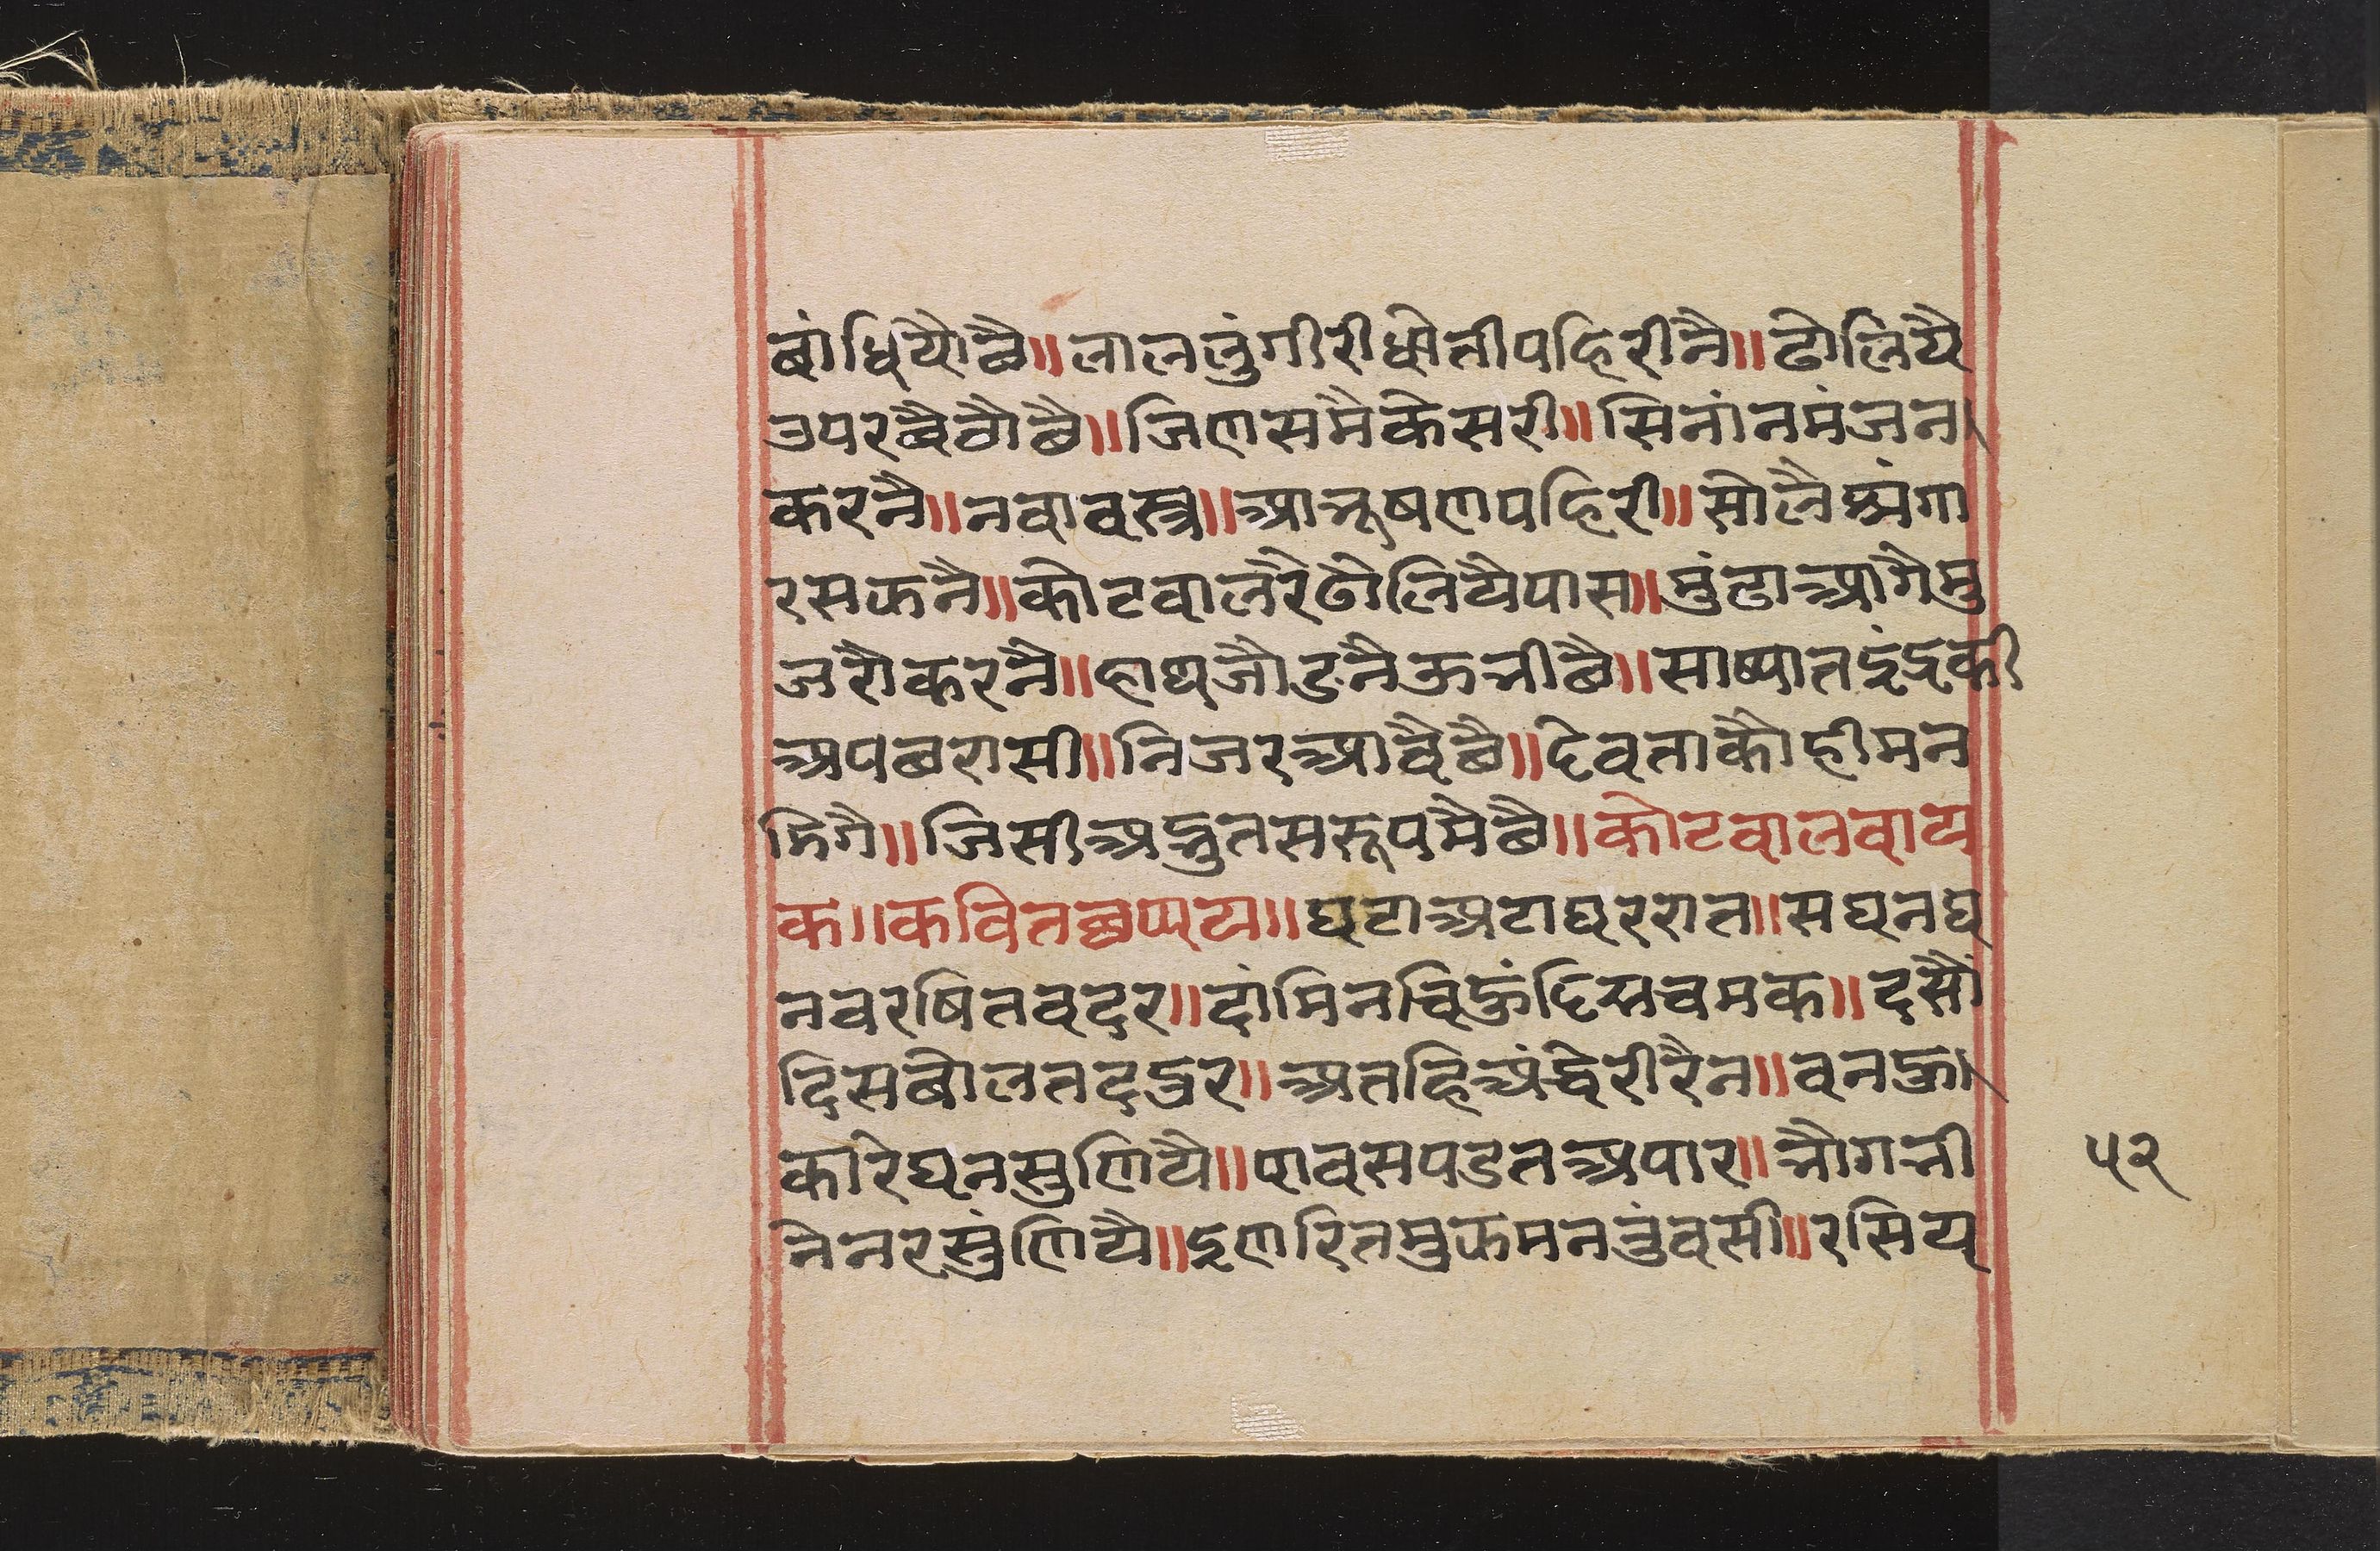 बांधियौ छै॥लाल लुंगी री धोती पहिरीनै॥ढोलियै
उपर बैठौ छै॥जिण समै केसरी॥सिनांन मंजन
करनै॥नवा वस्त्र॥आभूषण पहिरी॥सोलै श्रृंगा
र सझनै॥कोटवाल रै ढोलियै पास॥मुंढा आगै मु
जरौ करनै॥हाथ जौडनै ऊभी छै॥साष्यात इंद्र की
अपछरा सी॥निजर आवै छै॥देवता कौ ही मन
डिगै॥जिसी अद्भुत सरूप मै छै॥कोटवाल वाय
क॥कवित छप्पय॥घटा अटा घररात॥सघन घ
न वरषित वद्दर॥दांमिन चिहुं दिस चमक॥दसौं
दिस बोलत दद्दुर॥अतहि अंधेरी रैन॥वन झ
कारे घन सुणियै॥पावस पडत अपार॥भौगभी
नै नर सुंणियै॥इण रित मुझ मन तुं वसी॥रसिय
५२